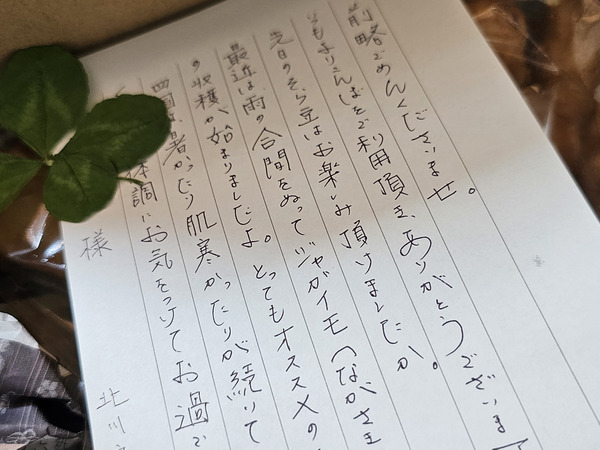 前略ごめんくださいませ。
いつもよりこんばをご利用頂き、ありがとうございま
先日のそら豆はお楽しみ頂けましたか。
最近は、雨の合間をぬってジャガイモ(ながさき
の収穫が始まりましたよ。とってもオススメの
四国は、暑かったり肌寒かったりが続いて
体調にお気をつけてお過ご
様
北川